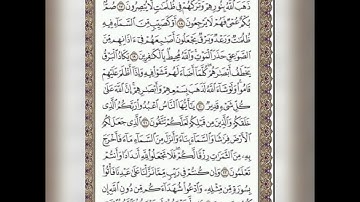 ذَهَبَ ٱللَّهُ بِنُورِهِمْ وَتَرَكَهُمْ فِي ظُلُمَٰتٍ لَّا يُبْصِرُونَ ١٧ صُمٌّۢ
بُكْمٌ عُمْيٌ فَهُمْ لَا يَرْجِعُونَ ١٨ أَوْ كَصَيِّبٍ مِّنَ ٱلسَّمَآءِ فِيهِ
ظُلُمَٰتٌ وَرَعْدٌ وَبَرْقٌ يَجْعَلُونَ أَصَٰبِعَهُمْ فِيٓ ءَاذَانِهِم مِّنَ
ٱلصَّوَٰعِقِ حَذَرَ ٱلْمَوْتِ وَٱللَّهُ مُحِيطٌۢ بِٱلْكَٰفِرِينَ ١٩ يَكَادُ ٱلْبَرْقُ
يَخْطَفُ أَبْصَٰرَهُمْ كُلَّمَآ أَضَآءَ لَهُم مَّشَوْا۟ فِيهِ وَإِذَآ أَظْلَمَ عَلَيْهِمْ
قَامُوا۟ وَلَوْ شَآءَ ٱللَّهُ لَذَهَبَ بِسَمْعِهِمْ وَأَبْصَٰرِهِمْ إِنَّ ٱللَّهَ عَلَىٰ
كُلِّ شَيْءٍ قَدِيرٌ ٢٠ يَٰٓأَيُّهَا ٱلنَّاسُ ٱعْبُدُوا۟ رَبَّكُمُ ٱلَّذِي
خَلَقَكُمْ وَٱلَّذِينَ مِن قَبْلِكُمْ لَعَلَّكُمْ تَتَّقُونَ ٢١ ٱلَّذِي جَعَلَ لَكُمُ
ٱلْأَرْضَ فِرَٰشًا وَٱلسَّمَآءَ بِنَآءً وَأَنزَلَ مِنَ ٱلسَّمَآءِ مَآءً فَأَخْرَجَ
بِهِۦ مِنَ ٱلثَّمَرَٰتِ رِزْقًا لَّكُمْ فَلَا تَجْعَلُوا۟ لِلَّهِ أَندَادًا وَأَنتُمْ
تَعْلَمُونَ ٢٢ وَإِن كُنتُمْ فِي رَيْبٍ مِّمَّا نَزَّلْنَا عَلَىٰ عَبْدِنَا فَأْتُوا۟
بِسُورَةٍ مِّن مِّثْلِهِۦ وَٱدْعُوا۟ شُهَدَآءَكُم مِّن دُونِ ٱللَّهِ إِن